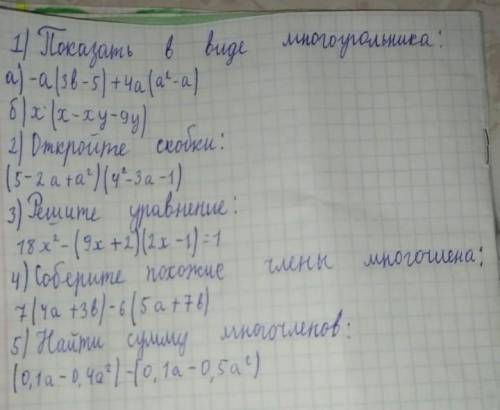 1) Показать в виде многоугольника:
а) -а(3в-5)+4а(а²-а)
б) х·(х-ху-9у)
2) Откройте скобки:
(5-2а+а²)(4²-3а-1)
3) Решите уравнение:
18х²-(9х+2)(2х-1)=1
4) Соберите похожие члены многочлена:
7(4а+3в)-6(5а+7в)
5) Найти сумму многочленов:
(0,1а-0,4а²)-(0,1а-0,5а²)